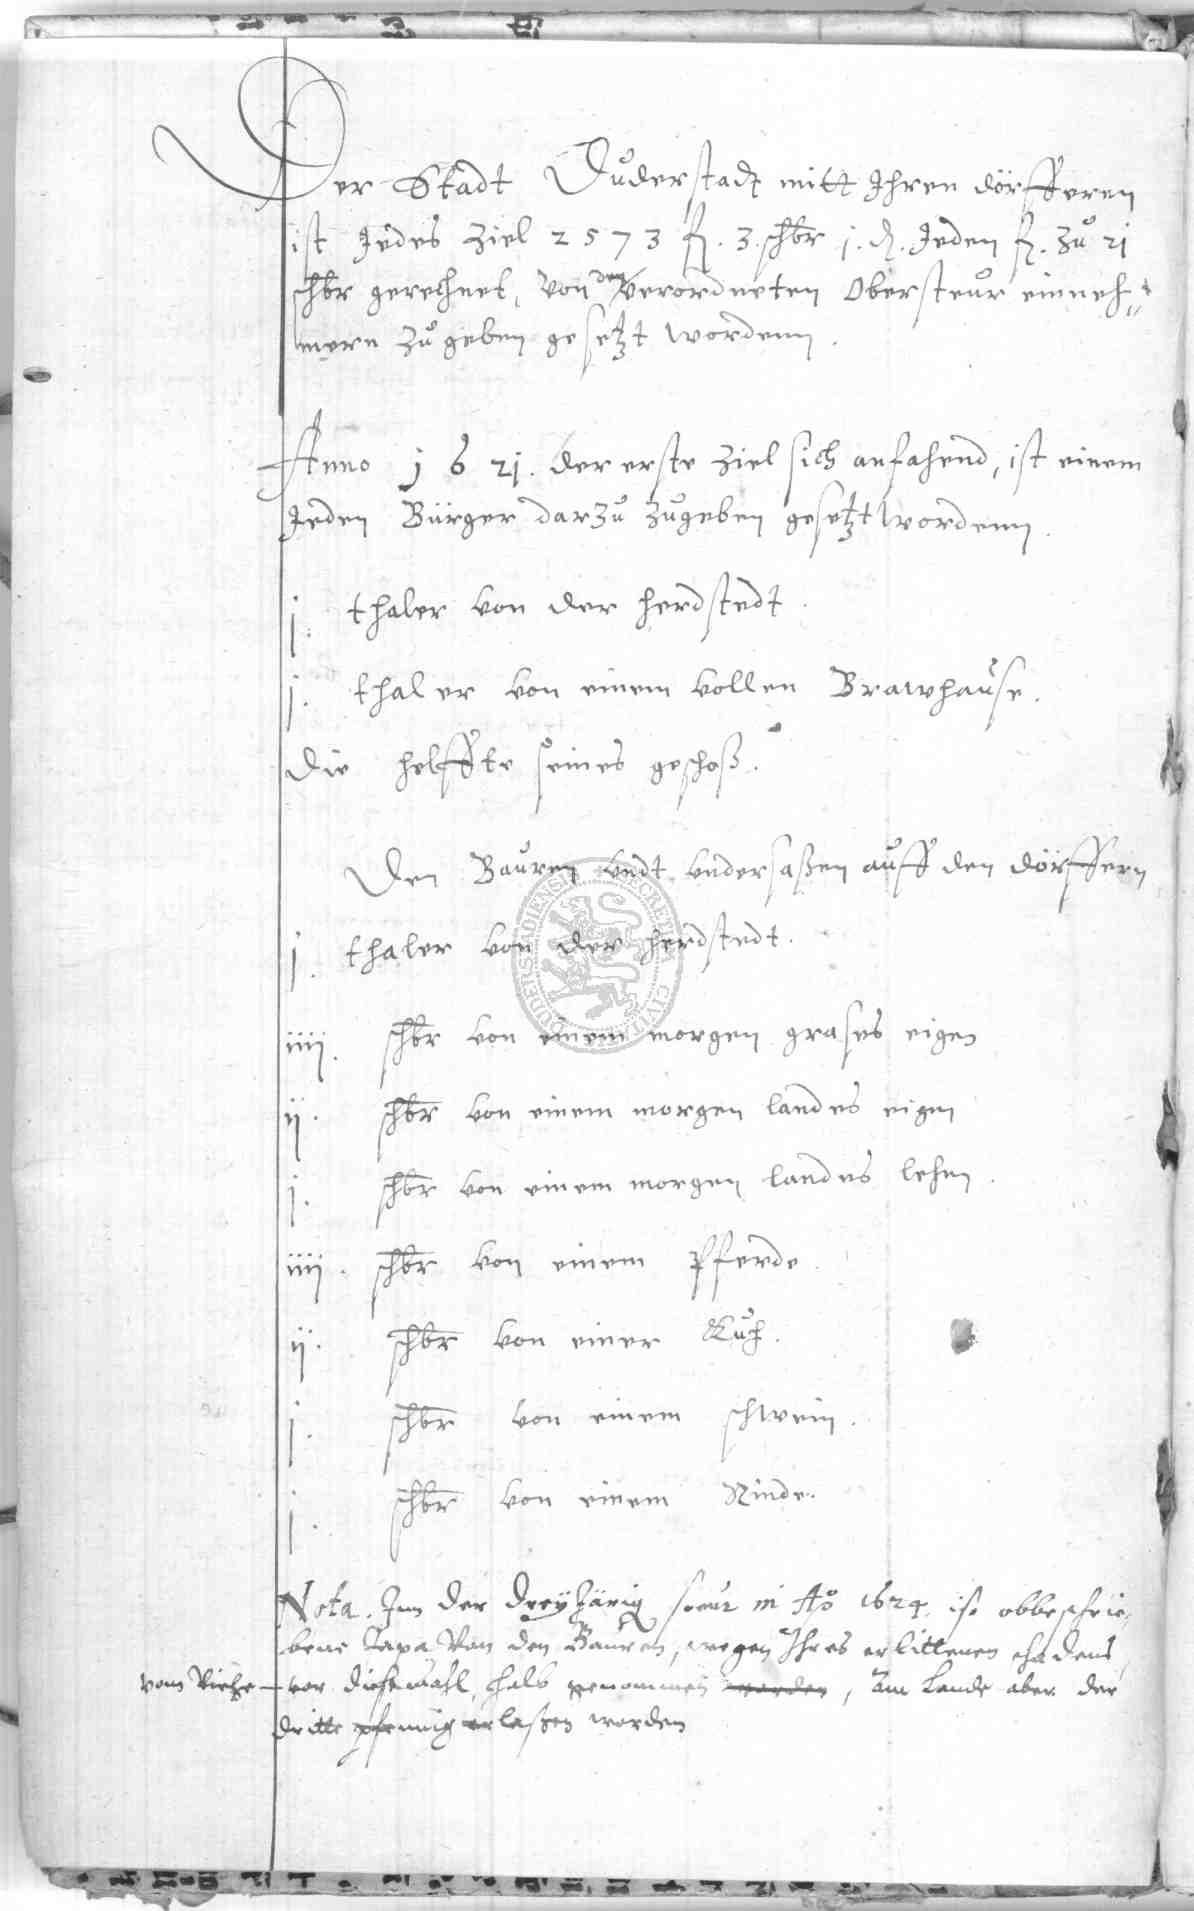 Der Stadt Duderstadt mitt Ihren dörfferen
ist Jedes Ziel 2573 fl. 3. schbr j. d. Jeden fl. zu 21
schbr gerechnet, von den verordneten Obersteur einneh=
mern zu geben gesetzt wordenn.
Anno 1621. der erste Ziel sich anfahend, ist einem
Jeden Bürger darzu zugeben gesetzt wordenn.
j. thaler von der herdstedt.
j. thaler von einem vollen Brawhause.
Die helffte seines geschoß.
Den Bauren vndt vndersaßen auff den dörffern
j. thaler von der herdstedt.
iiij. schbr von einem morgen grases eigen
ij. schbr von einem morgen landes eigen
j. schbr von einem morgen landes lehen.
iiij. schbr von einem Pferde.
ij. schbr von einer Kuh.
j. schbr von einem schwein.
j. schbr von einem Rinde.
Nota. Inn der dreyJärig steur in Ao 1624. ist obbeschrie=
bene Taxa Von den Bauren, wegen Ihres erlittenen schadens,
vom Viehe vor dießmahl halb genommen worden, Am Lande aber der
dritte pfennig erlaßen worden
DUDERSTADIENSIS SECRETUM CIVITATIS